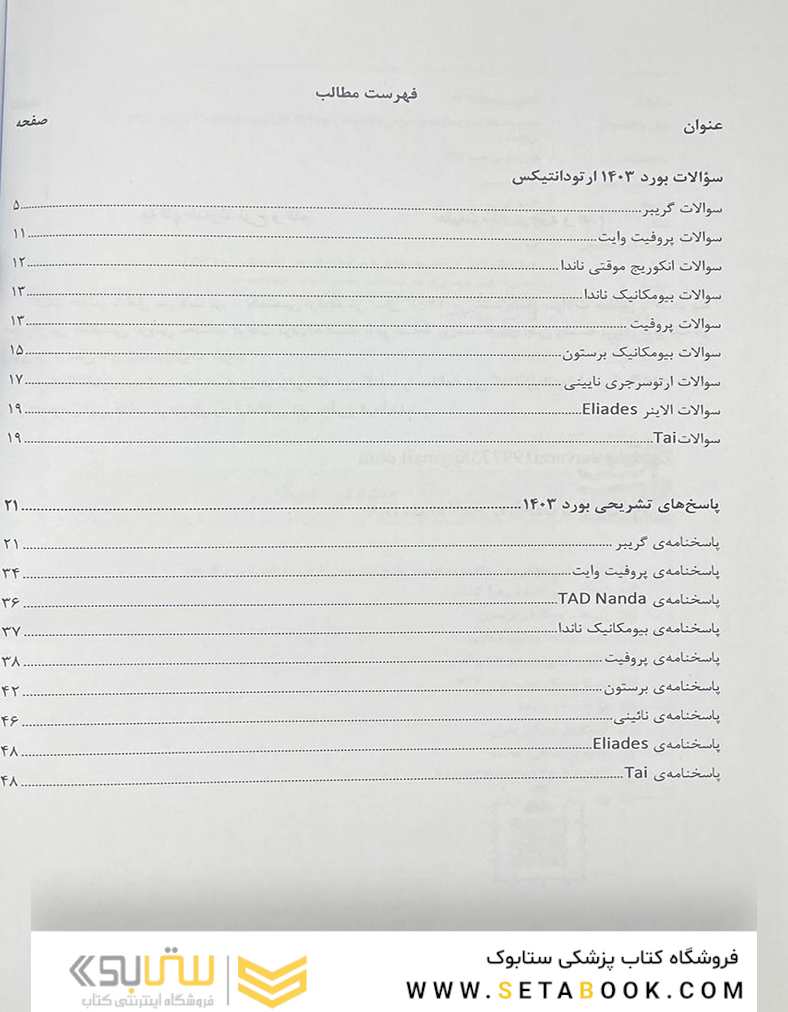 فهرست مطالب
عنوان صفحه
سؤالات بورد ۱۴۰۳ ارتودانتیکس
سوالات گریبر ۵
سوالات پروفیت وایت ۱۱
سوالات انکوریج موقتی ناندا ۱۲
سوالات بیومکانیک ناندا ۱۳
سوالات پروفیت ۱۳
سوالات بیومکانیک برستون ۱۵
سوالات ارتوسرجری نایینی ۱۷
سوالات الاینر Eliades ۱۹
سوالات Tai ۱۹
پاسخ‌های تشریحی بورد ۱۴۰۳ ۲۱
پاسخنامه‌ی گریبر ۲۱
پاسخنامه‌ی پروفیت وایت ۳۴
پاسخنامه‌ی TAD Nanda ۳۶
پاسخنامه‌ی بیومکانیک ناندا ۳۷
پاسخنامه‌ی پروفیت ۳۸
پاسخنامه‌ی برستون ۴۲
پاسخنامه‌ی نائینی ۴۶
پاسخنامه‌ی Eliades ۴۸
پاسخنامه‌ی Tai ۴۸
فروشگاه کتاب پزشکی ستابوک
WWW.SETABOOK.COM
ستابوک
فروشگاه اینترنتی کتاب